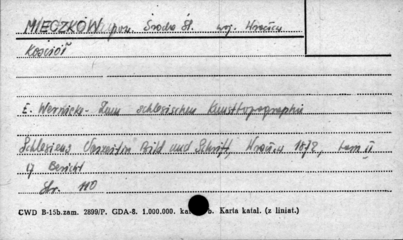 MIECZKÓW pow. Środa Śl. woj. Wrocław
Kościół
E. Wernicke - Zum schlesischen Kunsttopographie
Schlesiens Vorzeit in Bild und Schrift, Wrocław 1872, tom II
17 Bericht
Str. 110
CWD B-15b.zam. 2899/P. GDA-8. 1.000.000. Karta katal. (z liniat.)